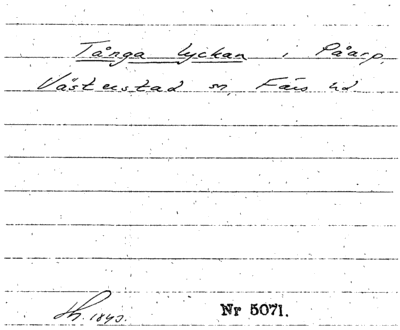 Tånga lyckan i Påarp.
Västerstad sn, Färs hd
Sk. 1843.
Nr 5071.